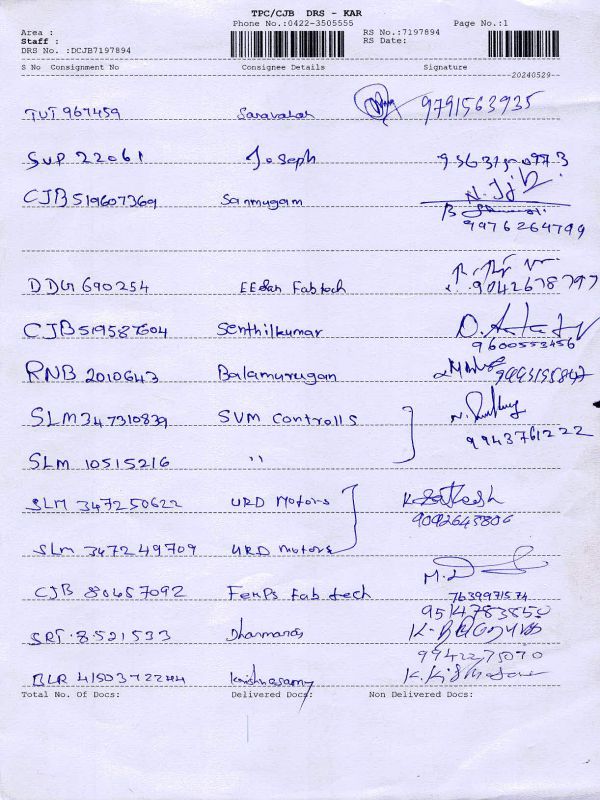 TPC/CJB DRS - KAR
Phone No.:0422-3505555 Page No.:1
Area :
Staff : RS No.:7197894
DRS No. :DCJB7197894 RS Date:
S No Consignment No Consignee Details Signature
20240529
TUT 967459 Saravanan 9791563935
SUP 22061 Joseph
CJB 519607369 Sanmugam
9976264799
DDG 690254 EEdan Fabtech 9042678797
CJB 519587604 Senthilkumar
9600553456
RNB 2010643 Balamurugan
SLM 347310839 SVM Controlls
9943761222
SLM 10515216 "
SLM 347250622 URD Motors
9092645806
SLM 347249709 URD Motors
CJB 80457092 Femps Fab tech 7639971574
9514783850
SRT 8521533 Dharmaraj
9942275070
BLR 4150372244 Krishnasamy
Total No. Of Docs: Delivered Docs: Non Delivered Docs: